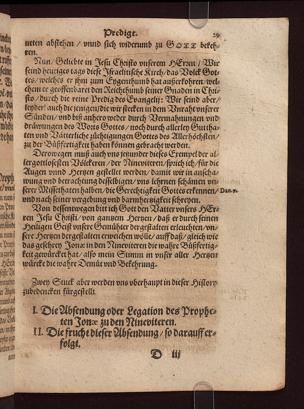 Predigt. 29
neten abstehen / vnnd sich widerumb zu GOTT bekeh-
ren.
Nun / Geliebte in Jesu Christo vnserem HErrn / Wir
seind heutiges tags diese Israelitische Kirch / das Volck Got-
tes / welches er jhm zum Eygenthumb hat außerkohren / wel-
chem er geoffenbaret den Reichthumb seiner Gnaden in Chri-
sto / durch die reine Predig des Evangelij: Wir seind aber /
leyder! auch diejenigen die wir stecken in den Vnraht vnserer
Sünden / vnd bißhero weder durch Vermahnungen vnd
dräwungen des Worts Gottes / noch durch allerley Guttha-
ten vnd Vätterliche züchtigungen Gottes des Allerhöchsten /
zu der Bußfertigkeit haben können gebracht werden.
Derowegen muß auch vns jetzunder dieses Exempel der al-
lergottlosesten Völckeren / der Niniviteren / sprich ich / für die
Augen vnnd Hertzen gestellet werden / damit wir in anschaw-
ung vnd betrachtung desselbigen / vns lehrnen schämen vn-
serer Missethaten halben / die Gerechtigkeit Gottes erkennen /
vnd nach seiner vergebung vnd barmhertzigkeit schreyen.
Dan. 9.
Von dessentwegen bitt ich Gott den Vatter vnsers HEr-
ren Jesu Christi / von gantzem Hertzen / daß er durch seinen
Heiligen Geist vnsere Gemühter der gestalten erleuchten / vn-
sere Hertzen dergestalten erweichen wölle / auff daß / gleich wie
das geschrey Jonæ in den Niniviteren die wahre Bußfertig-
keit gewürcket hat / also mein Stimm in vnser aller Hertzen
würcke die wahre Demut vnd Bekehrung.
Zwey Stuck aber werden vns oberhaupt in dieser History
zubedencken fürgestellt.
I. Die Absendung oder Legation des Prophe-
ten Jonæ zu den Niniviteren.
II. Die frucht dieser Absendung / so darauff er-
folgt.
D iij